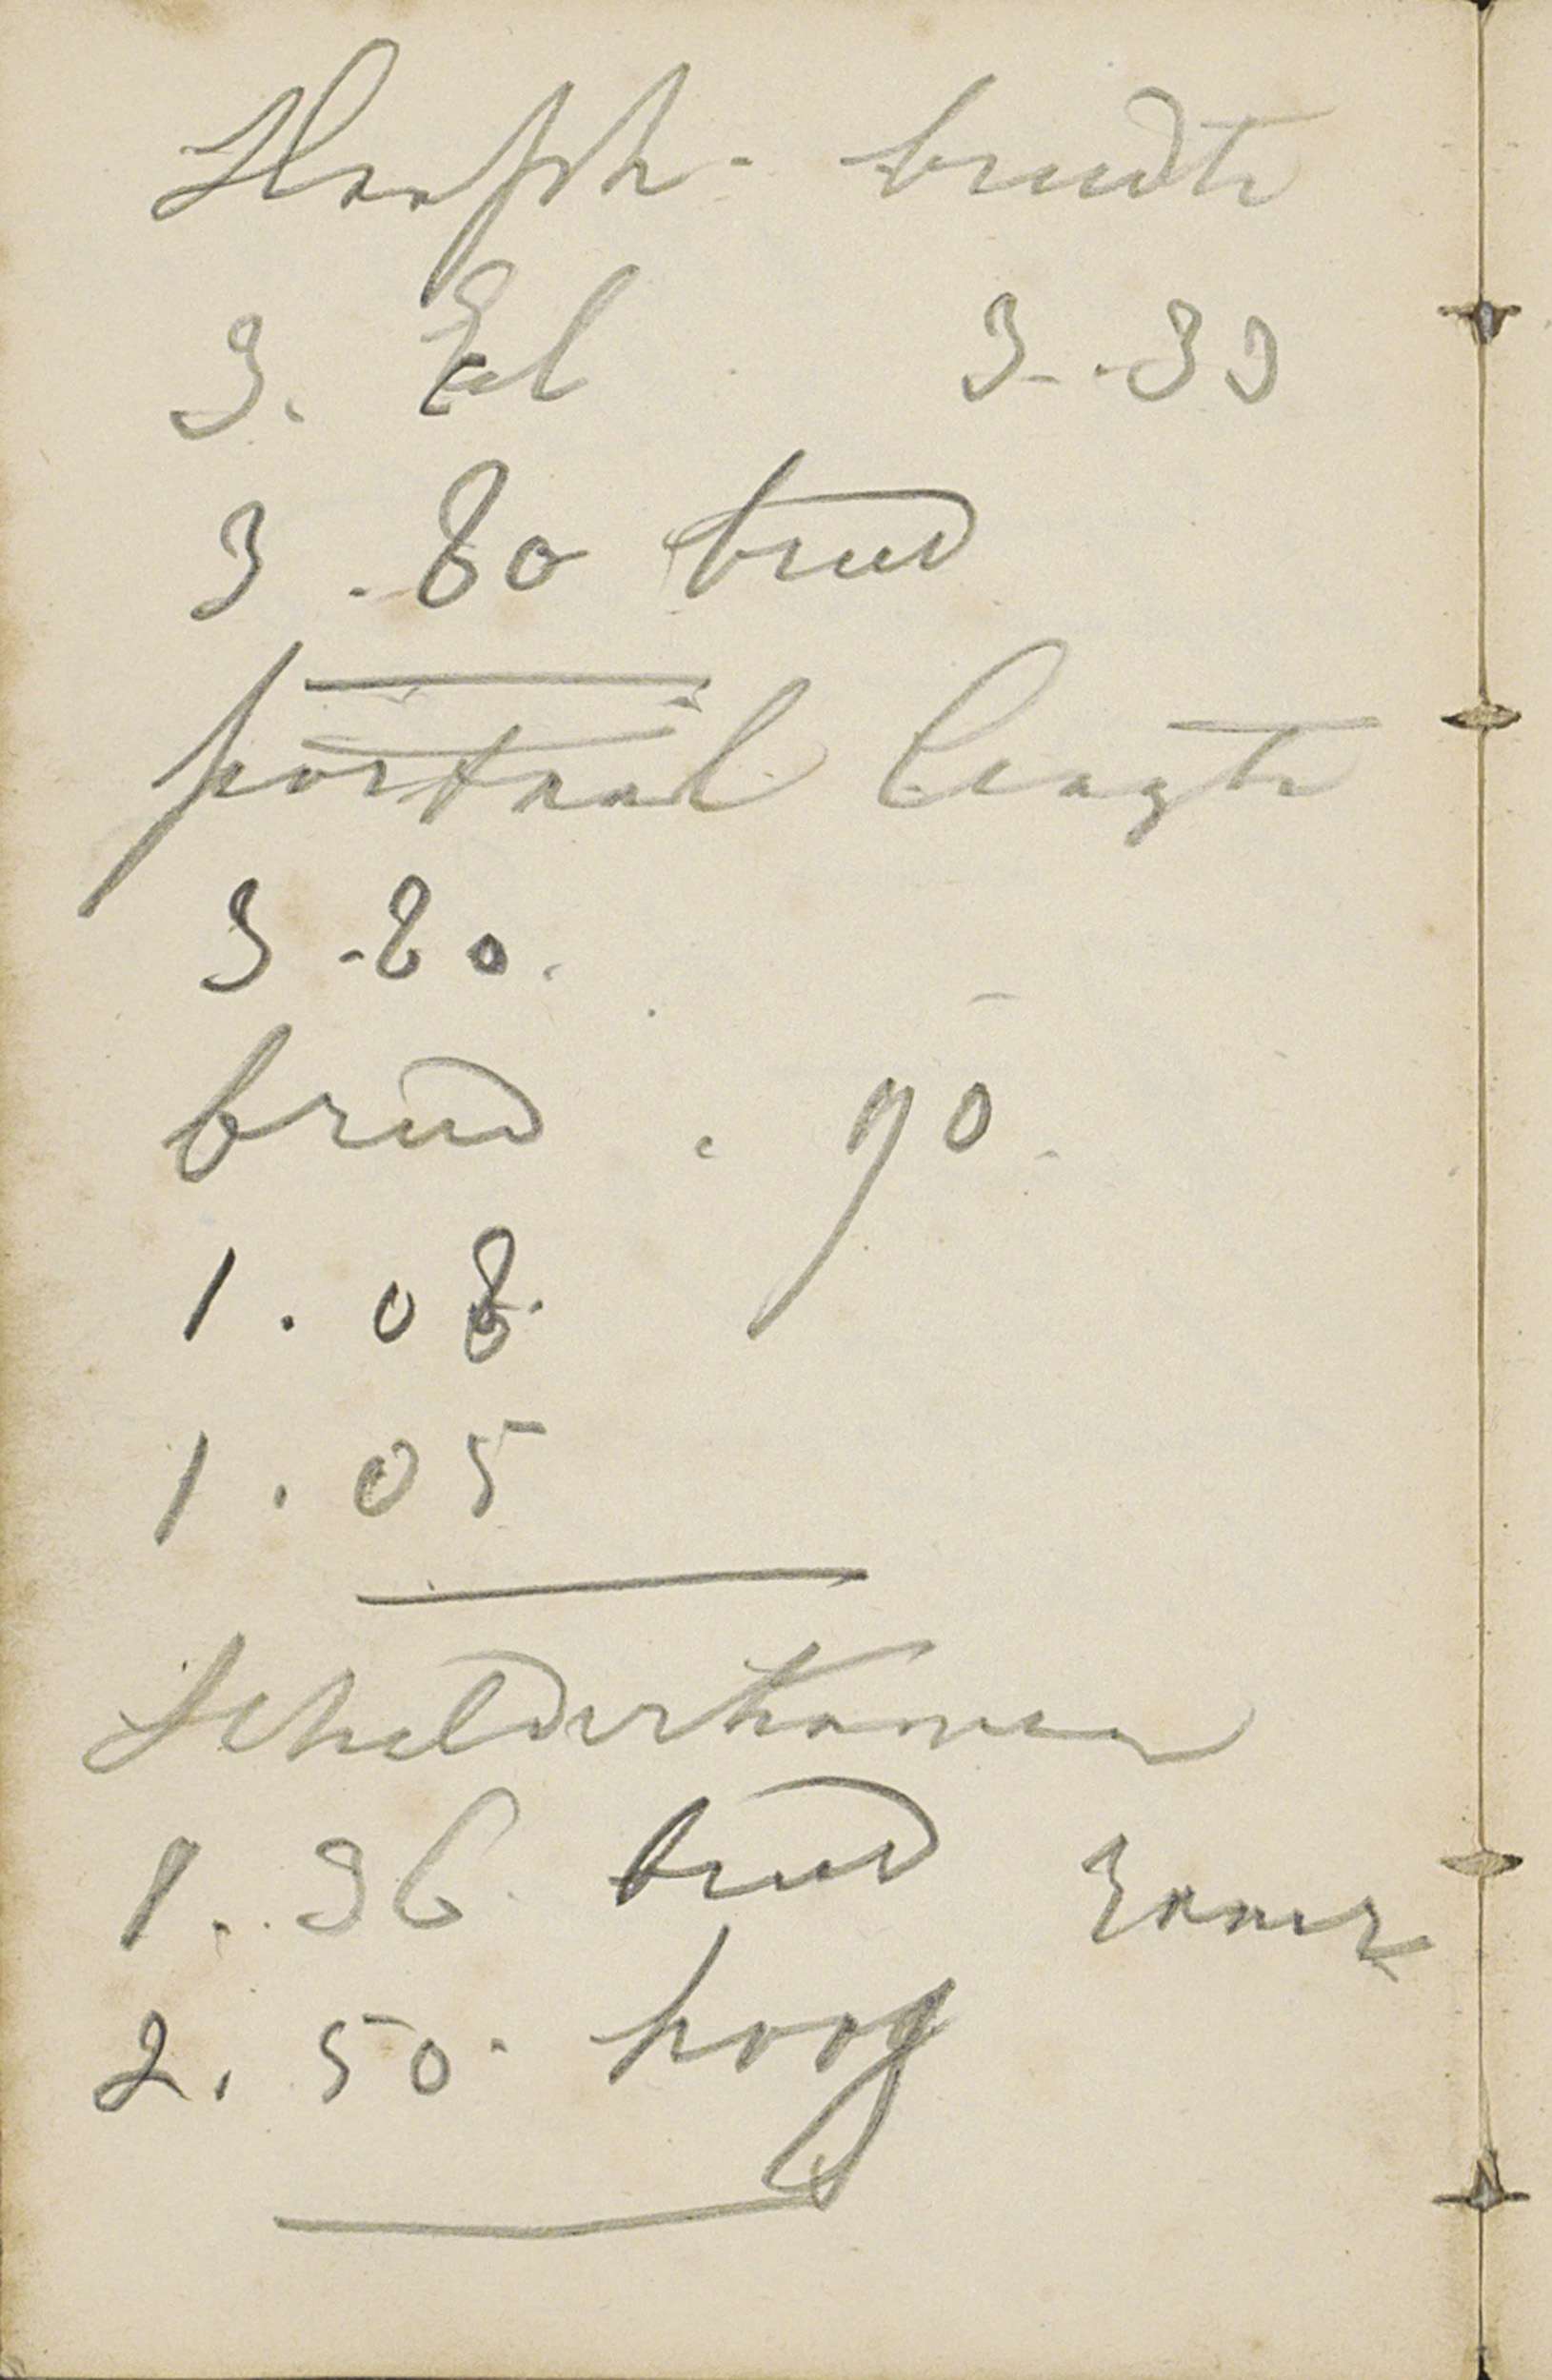 breedte
3. El 3.-33
3.80 breed
portaal lengte
3-80.
breed. 90.
1.08.
1.05
Schilderkamer
1.36 breed
2.50 hoog